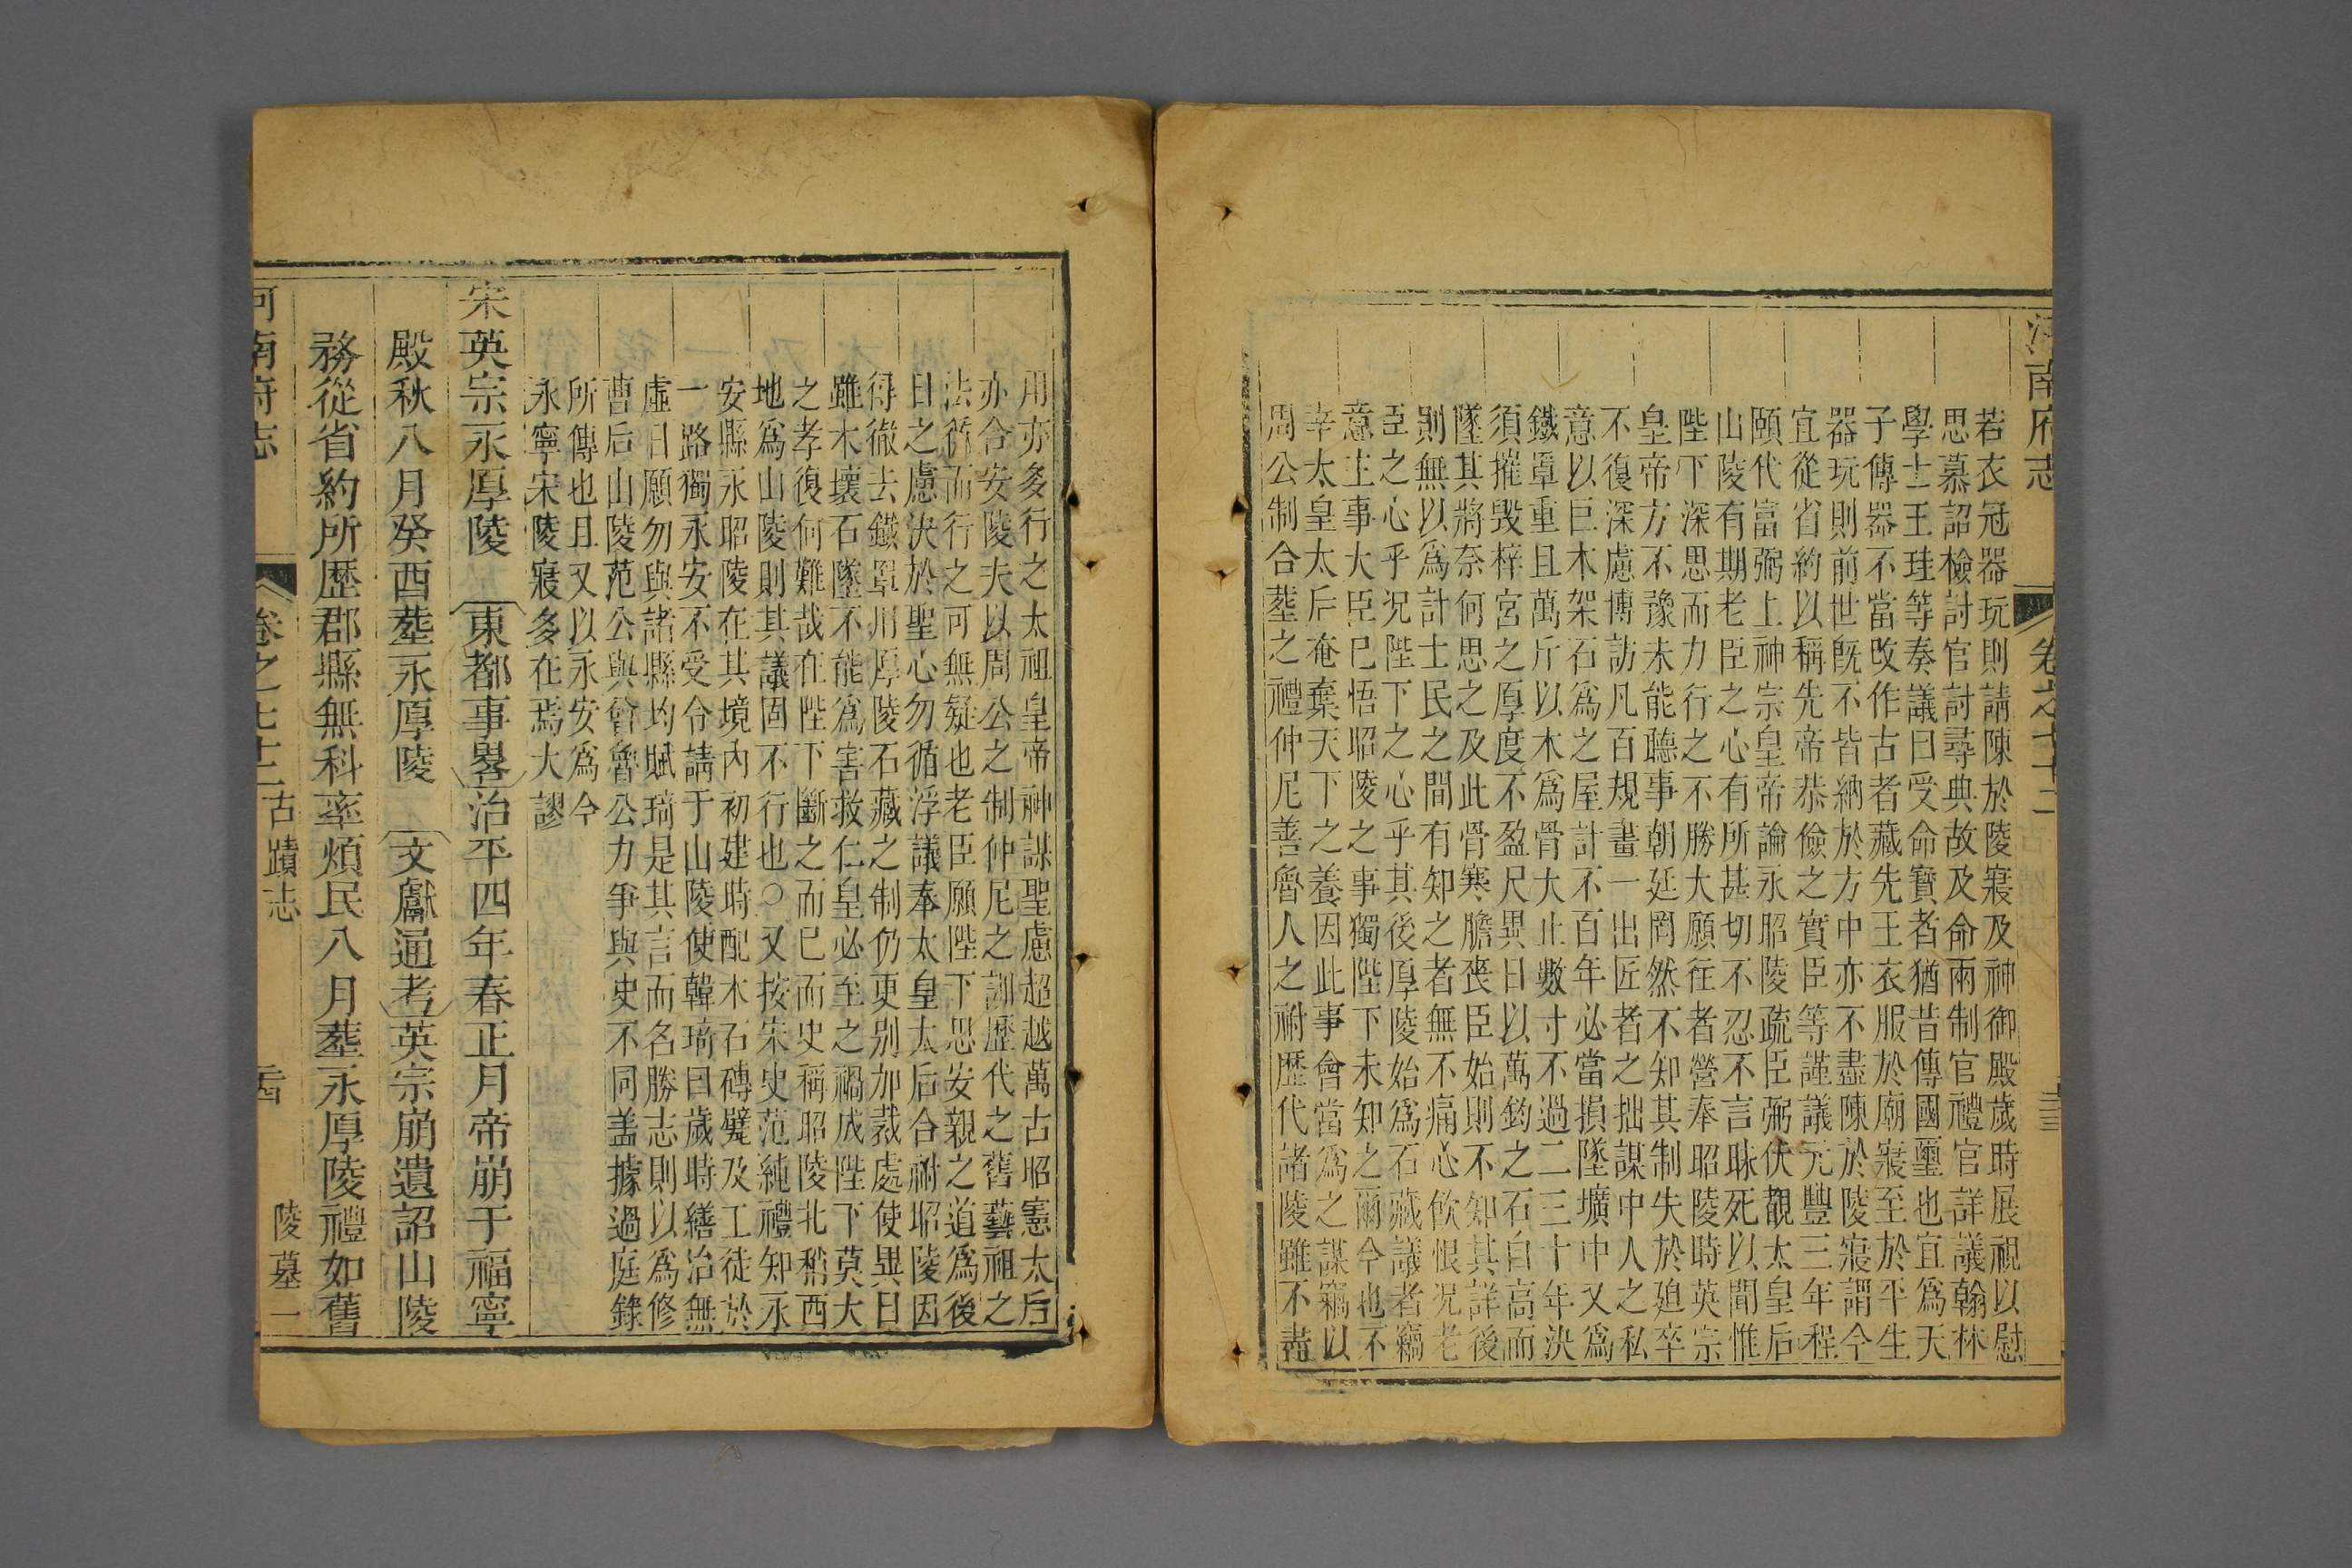 河南府志 卷之七十二
若衣冠器玩則請陳於陵寢及神御殿歲時展視以慰
思慕詔檢討官討尋典故及命兩制官禮官詳議翰林
學士王珪等奏議曰受命寳者猶昔傳國璽也宜爲天
子傳器不當改作古者藏先王衣服於廟寢至於平生
器玩則前世旣不皆納於方中亦不盡陳於陵寢謂今
宜從省約以稱先帝恭儉之實臣等謹議元豐三年程
頤代富弼上神宗皇帝論永昭陵疏臣弼伏覩太皇后
山陵有期老臣之心有所甚切不忍不言昧死以聞惟
陛下深思而力行之不勝大願往者營奉昭陵時英宗
皇帝方不豫未能聽事朝廷罔然不知其制失於廹卒
不復深慮博訪凡百規畫一出匠者之拙謀中人之私
意以巨木架石爲之屋計不百年必當損墜壙中又爲
鐵罩重且萬斤以木爲骨大止數寸不過二三十年決
須摧毀梓宮之厚度不盈尺異日以萬鈞之石自高而
墜其將奈何思之及此骨寒膽喪臣始則不知其詳後
則無以爲計士民之間有知之者無不痛心飲恨況老
臣之心乎況陛下之心乎其後厚陵始爲石藏議者竊
意主事大臣已悟昭陵之事獨陛下未知之爾今也不
幸太皇太后奄棄天下之養因此事會當爲之謀竊以
周公制合葬之禮仲尼善魯人之祔歴代諸陵雖不盡
用亦多行之太祖皇帝神謀聖慮超越萬古昭憲太后
亦合安陵夫以周公之制仲尼之訓歷代之舊藝祖之
法循而行之可無疑也老臣願陛下思安親之道爲後
日之慮決於聖心勿循浮議奉太皇太后合祔昭陵因
得徹去鐵罩用厚陵石藏之制仍更别加裁處使異日
雖木壞石墜不能爲害救仁皇必至之禍成陛下莫大
之孝復何難哉在陛下斷之而已而史稱昭陵北稍西
地爲山陵則其議固不行也○又按宋史范純禮知永
安縣永昭陵在其境内初建時配木石磚甓及工徒於
一路獨永安不受令請于山陵使韓琦曰歲時繕治無
虛日願勿與諸縣均賦琦是其言而名勝志則以爲修
曹后山陵范公與曾魯公力爭與史不同盖據過庭錄
所傳也且又以永安爲今
永寧宋陵寢多在焉大謬
宋英宗永厚陵 東都事畧治平四年春正月帝崩于福寧
殿秋八月癸酉葬永厚陵 文獻通考英宗崩遺詔山陵
務從省約所歴郡縣無科率煩民八月葬永厚陵禮如舊
河南府志 卷之七十二 古蹟志 陵墓一